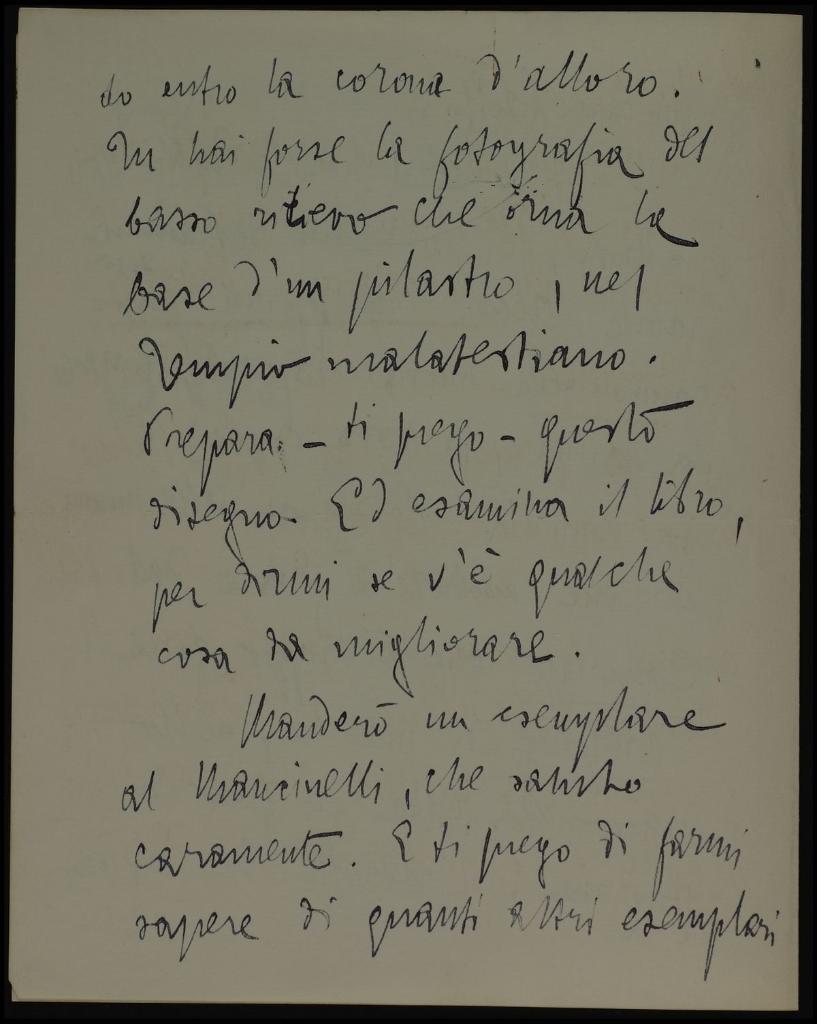 do entro la corona d'alloro.
Tu hai forse la fotografia del
basso rilievo che orna la
base d'un pilastro, nel
Tempio malatestiano.
Prepara - ti prego - questo
disegno. Ed esamina il libro,
per dirmi se v'è qualche
cosa da migliorare.
Manderò un esemplare
al Mancinelli, che saluto
caramente. E ti prego di farmi
sapere di quanti altri esemplari